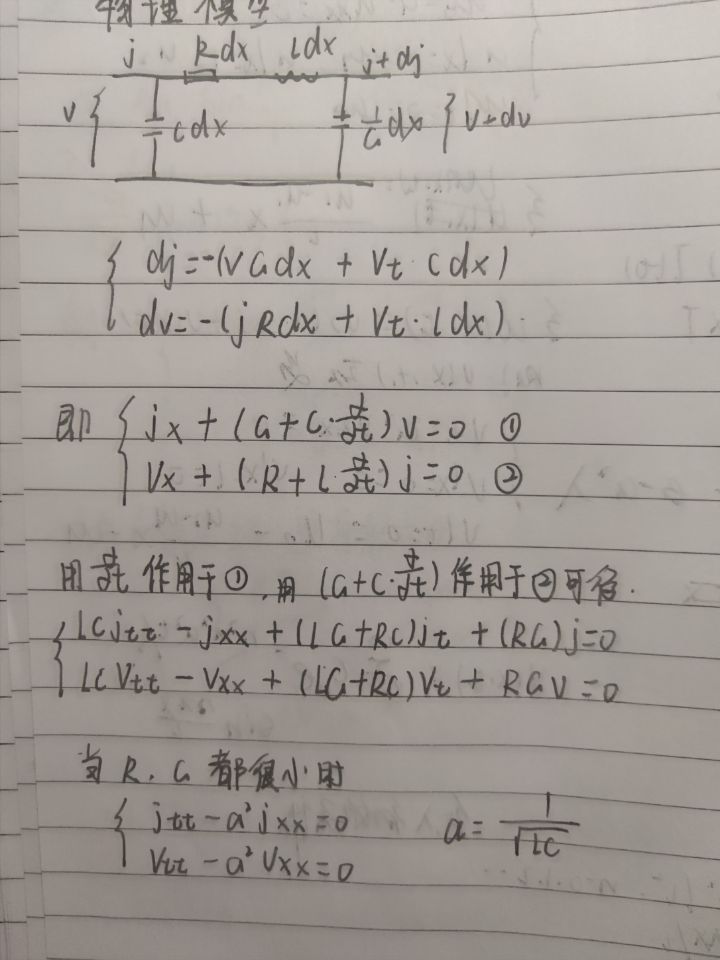 物理模型
j Rdx Ldx j+dj
V { Cdx 1/G dx } V+dv
{ dj=-(VGdx + Vt·Cdx)
dv=-(jRdx + Vt·Ldx).
即 { jx + (G+C·∂/∂t)V=0 ①
Vx + (R+L·∂/∂t)j=0 ②
用 ∂/∂t 作用于①,用 (G+C·∂/∂t) 作用于②可得.
{ LCjtt - jxx + (LG+RC)jt + (RG)j=0
LCVtt - Vxx + (LG+RC)Vt + RGV=0
当 R、G 都很小时
{ jtt - a²jxx=0 a= 1/√LC
Vtt - a²Vxx=0